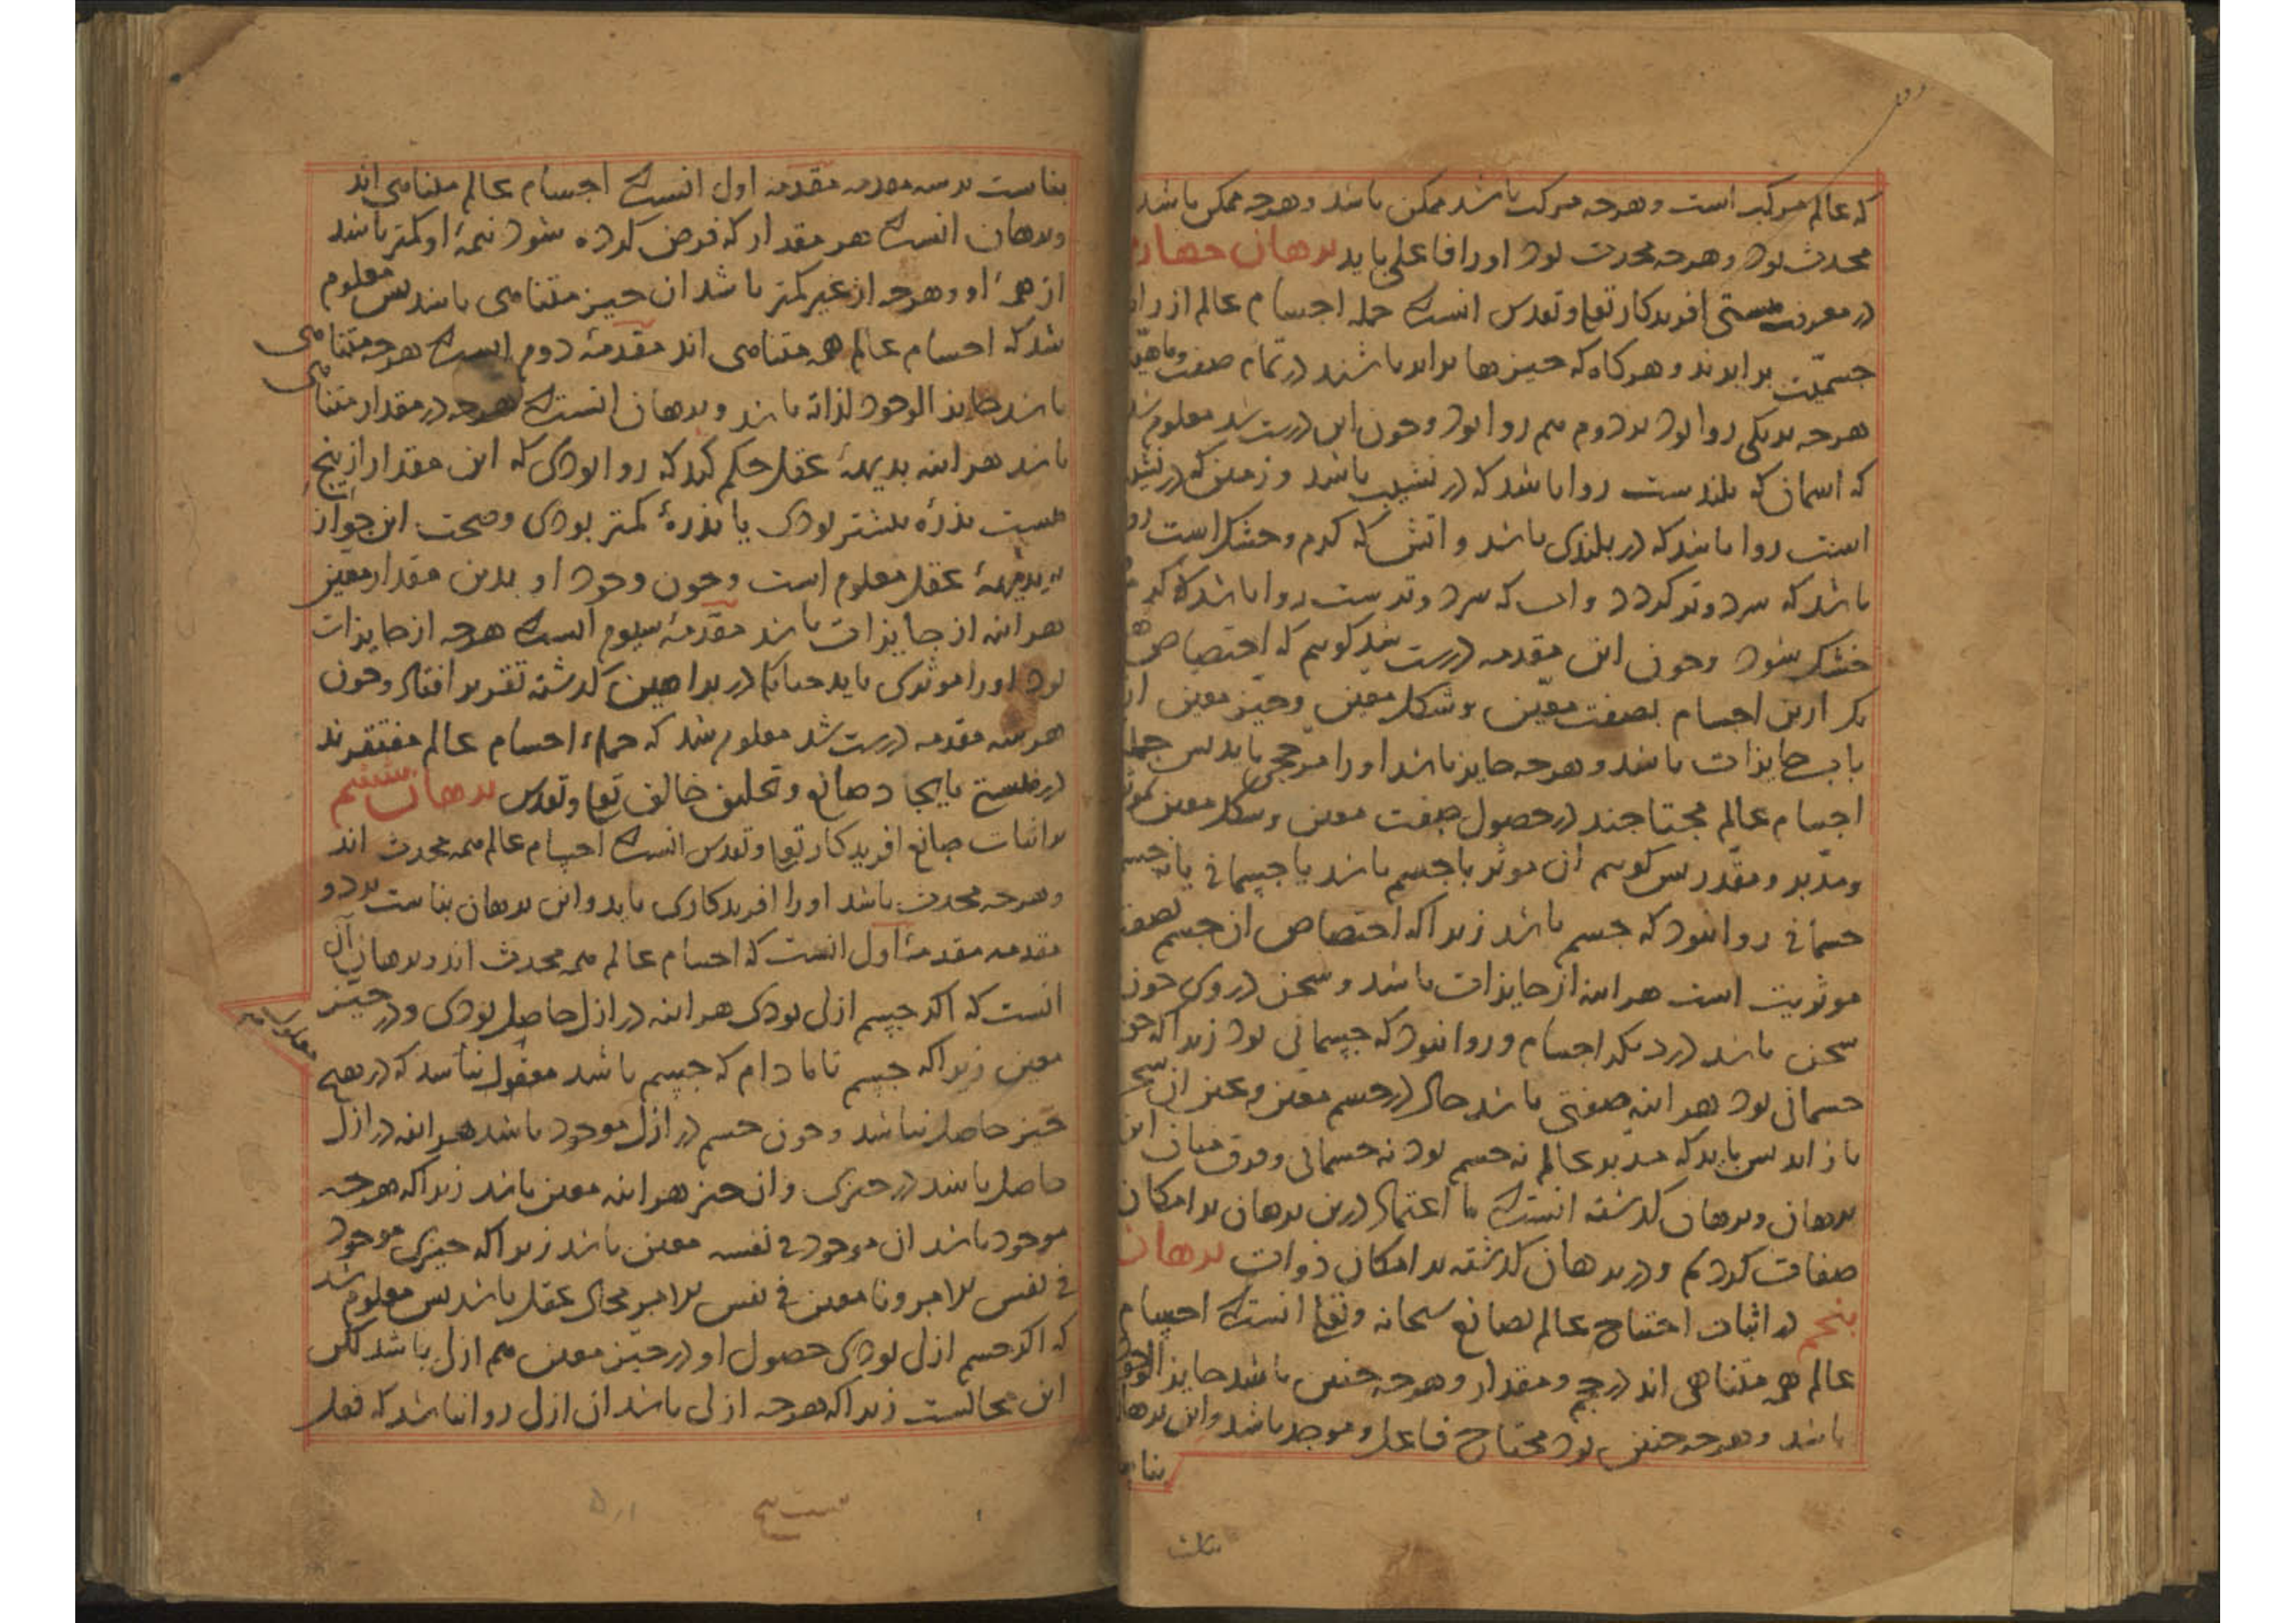 که عالم مرکب است و هرچه مرکب باشد ممکن باشد و هرچه ممکن باشد
محدث بود و هرچه محدث بود او را فاعلی باید برهان چهارم
در معرفت هستی افریدکار تعالی و تقدس انست که جمله اجسام عالم از راه
جسمیّت برابرند و هرکاه که چیزها برابر باشند در تمام صفت و ماهیّت
هرچه بر یکی روا بود بر دوم هم روا بود و چون این درست شد معلوم شد
که اسمان که بلندست روا باشد که در نشیب باشد و زمین که در نشیب
است روا باشد که در بلندی باشد و اتش که کرم و خشک است روا
باشد که سرد و تر کردد و اب که سرد و ترست روا باشد که کرم و
خشک شود و چون این مقدمه درست شد کوییم که اختصاص هر
یک ازین اجسام بصفت معیّن و شکل معیّن و حیز معین از
باب جایزات باشد و هرچه جایز باشد او را مرجحی باید پس جمله
اجسام عالم محتاجند در حصول صفت معین و شکل معین بموثر
و مدبر و مقدر پس کوییم ان موثر یا جسم باشد یا جسمانی یا نه جسم
جسمانی روا نبود که جسم باشد زیرا که اختصاص ان جسم بصفت
موثریت است هر اینه از جایزات باشد و سخن در وی چون
سخن باشد در دیکر اجسام و روا نبود که جسمانی بود زیرا که چون
جسمانی بود هر اینه صفتی باشد حال در جسم معین و عین ان سخن
باز اید پس باید که مدبر عالم نه جسم بود نه جسمانی و فرق میان این
برهان و برهان کذشته انست که ما اعتماد درین برهان بر امکان
صفات کردیم و در برهان کذشته بر امکان ذوات برهان
پنجم در اثبات احتیاج عالم بصانع سبحانه و تعالی انست که اجسام
عالم همه متناهی اند در حجم و مقدار و هرچه چنین باشد جایز الوجود
باشد و هرچه چنین بود محتاج فاعل و موجد باشد و این برهان
بناست
ثالث
بناست بر سه مقدمه مقدمه اول انست که اجسام عالم متناهی اند
و برهان انست که هر مقدار که فرض کرده شود نیمهٔ او کمتر باشد
از همهٔ او و هرچه از غیر کمتر باشد ان چیز متناهی باشد پس معلوم
شد که اجسام عالم همه متناهی اند مقدمهٔ دوم انست که هرچه متناهی
باشد جایز الوجود لذاته باشد و برهان انست که هرچه در مقدار متناهی
باشد هر اینه بدیههٔ عقل حکم کند که روا بودی که این مقدار ازینچ
هست بذرّه بیشتر بودی یا بذرهٔ کمتر بودی و صحت این جواز
بدیههٔ عقل معلوم است و چون وجود او بدین مقدار معین
هر اینه از جایزات باشد مقدمهٔ سیوم انست که هرچه از جایزات
بود او را موثری باید چنانکه در براهین کذشته تقریر افتاد و چون
هر سه مقدمه درست شد معلوم شد که جملهٔ اجسام عالم مفتقرند
در هستی بایجاد صانع و تخلیق خالق تعالی و تقدس برهان ششم
بر اثبات صانع افریدکار تعالی و تقدس انست که اجسام عالم همه محدث اند
و هرچه محدث باشد او را افریدکاری باید و این برهان بناست بر دو
مقدمه مقدمهٔ اول انست که اجسام عالم همه محدث اند و برهان آن
انست که اکر جسم ازلی بودی هر اینه در ازل حاصل بودی و در حیّز
معین زیرا که جسم تا مادام که جسم باشد معقول نباشد که در هیچ
حیّز حاصل نباشد و چون جسم در ازل موجود باشد هر اینه در ازل
حاصل باشد در حیزی و ان حیز هر اینه معین باشد زیرا که هرچه
موجود باشد ان موجود فی نفسه معین باشد زیرا که چیزی موجود
فی نفس الامر و نامعین فی نفس الامر محال عقل باشد پس معلوم شد
که اکر جسم ازلی بودی حصول او در حیز معین هم ازلی باشد لکن
این محالست زیرا که هرچه ازلی باشد ان ازل روا نباشد که فعل